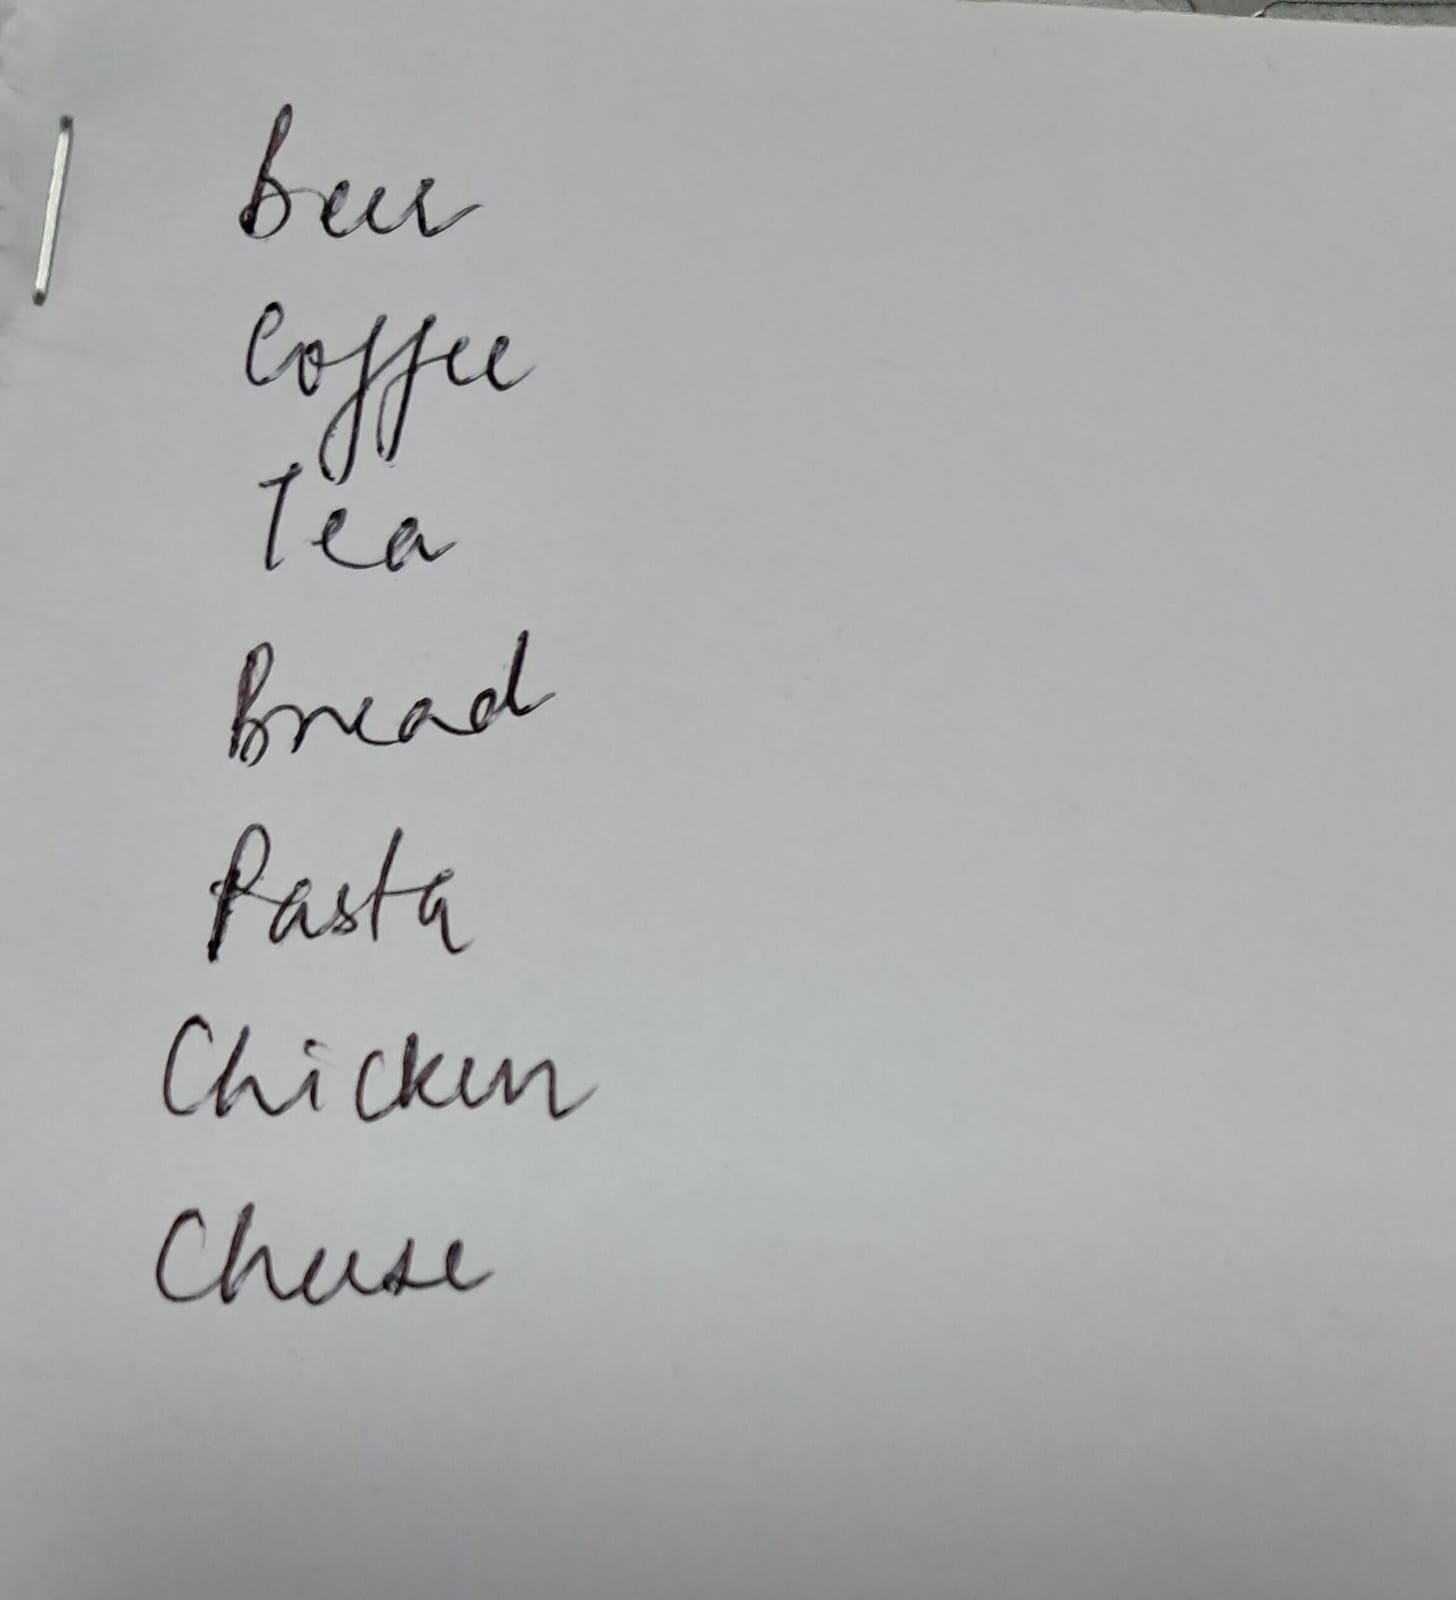 Beer
Coffee
Tea
Bread
Pasta
Chicken
Cheese